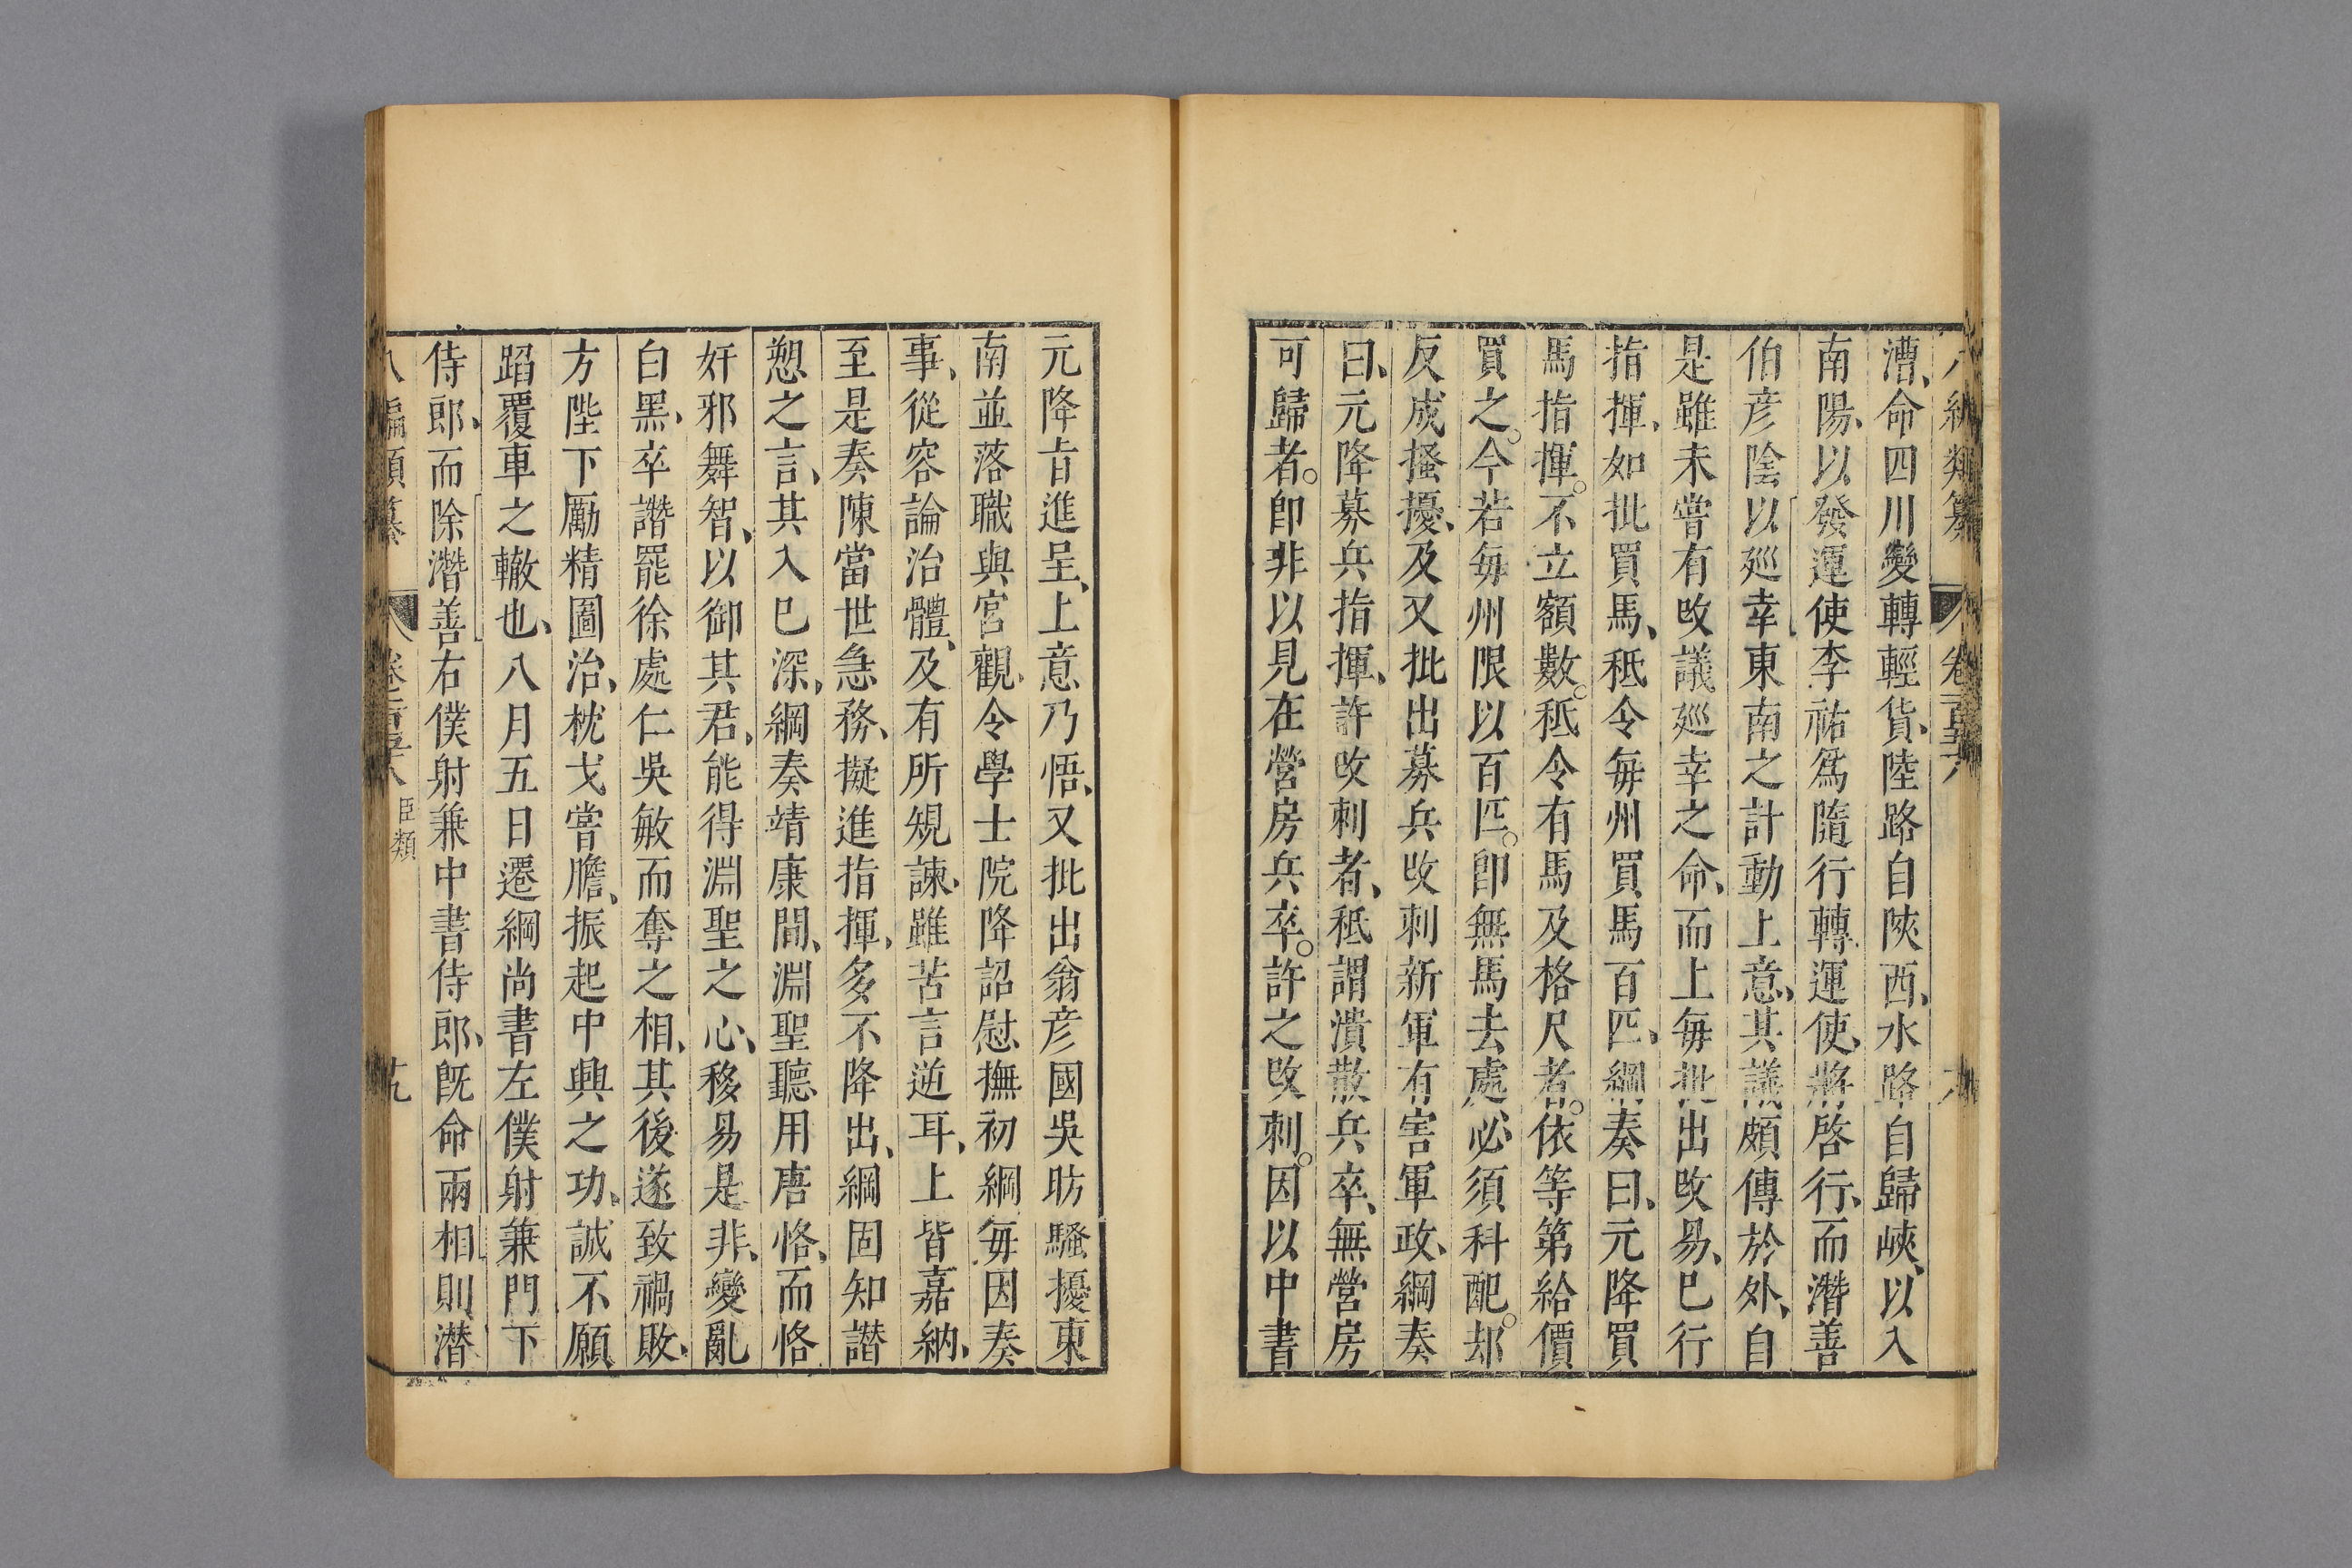 漕、命四川變轉輕貨、陸路自陝西、水路自歸峽、以入
南陽、以發運使李祐爲隨行轉運使、將啓行、而潛善
伯彥陰以廵幸東南之計動上意、其議頗傳於外、自
是雖未嘗有攺議廵幸之命、而上每批出攺易、巳行
指揮、如批買馬、秪令每州買馬百匹、綱奏曰、元降買
馬指揮。不立額數。秪令有馬及格尺者。依等第給價
買之。今若每州限以百匹。卽無馬去處必須科配。却
反成搔擾、及又批出募兵攺刺新軍有害軍政、綱奏
曰、元降募兵指揮、許攺刺者、秪謂潰散兵卒、無營房
可歸者。卽非以見在營房兵卒。許之攺刺。因以中書
元降旨進呈、上意乃悟、又批出翁彥國吳昉騷擾東
南並落職與宮觀、令學士院降詔慰撫初綱每因奏
事、從容論治體、及有所規諫、雖苦言逆耳、上皆嘉納、
至是奏陳當世急務、擬進指揮、多不降出、綱固知譖
愬之言、其入巳深、綱奏靖康間、淵聖聽用唐恪、而恪
奸邪舞智、以御其君、能得淵聖之心、移易是非、變亂
白黑、卒譖罷徐處仁吳敏而奪之相、其後遂致禍敗、
方陛下勵精圖治、枕戈嘗膽、振起中興之功、誠不願
蹈覆車之轍也、八月五日遷綱尚書左僕射兼門下
侍郎、而除潛善右僕射兼中書侍郎、旣命兩相、則潛
八編類纂 卷二百五十八 臣類 十九